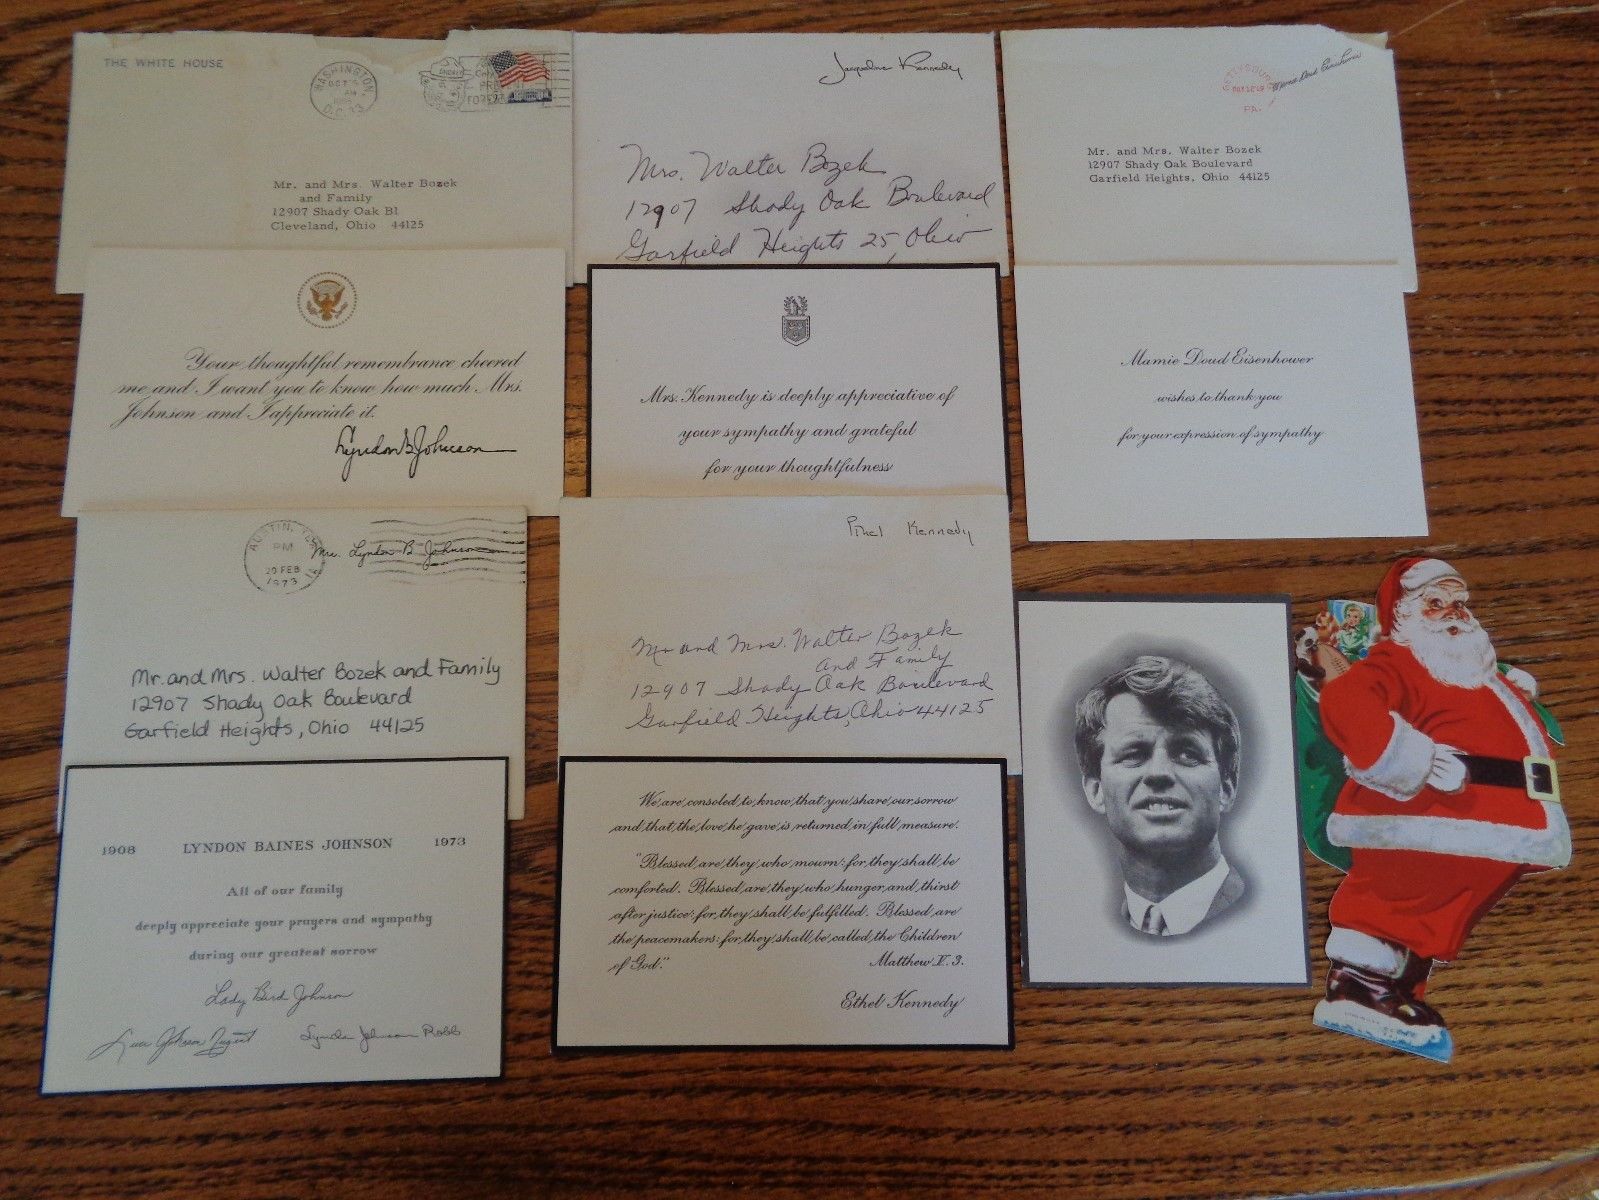 THE WHITE HOUSE
WASHINGTON,
D.C.
Mr. and Mrs. Walter Bozek
and Family
12907 Shady Oak Bl
Cleveland, Ohio 44125
Jacqueline Kennedy
Mrs. Walter Bozek
12907 Shady Oak Boulevard
Garfield Heights 25, Ohio
GETTYSBURG
PA.
Mamie Doud Eisenhower
Mr. and Mrs. Walter Bozek
12907 Shady Oak Boulevard
Garfield Heights, Ohio 44125
Your thoughtful remembrance cheered
me and I want you to know how much Mrs.
Johnson and I appreciate it.
Lyndon B. Johnson
Mrs. Kennedy is deeply appreciative of
your sympathy and grateful
for your thoughtfulness
Mamie Doud Eisenhower
wishes to thank you
for your expression of sympathy
AUSTIN, TEX
PM
20 FEB
1973
Mrs. Lyndon B Johnson
Mr. and Mrs. Walter Bozek and Family
12907 Shady Oak Boulevard
Garfield Heights, Ohio 44125
Ethel Kennedy
Mr and Mrs. Walter Bozek
and Family
12907 Shady Oak Boulevard
Garfield Heights, Ohio 44125
1908 LYNDON BAINES JOHNSON 1973
All of our family
deeply appreciate your prayers and sympathy
during our greatest sorrow
Lady Bird Johnson
Luci Johnson Nugent Lynda Johnson Robb
We are consoled to know that you share our sorrow
and that the love he gave is returned in full measure.
"Blessed are they who mourn: for they shall be
comforted. Blessed are they who hunger and thirst
after justice: for they shall be fulfilled. Blessed are
the peacemakers: for they shall be called the Children
of God." Matthew V. 3.
Ethel Kennedy